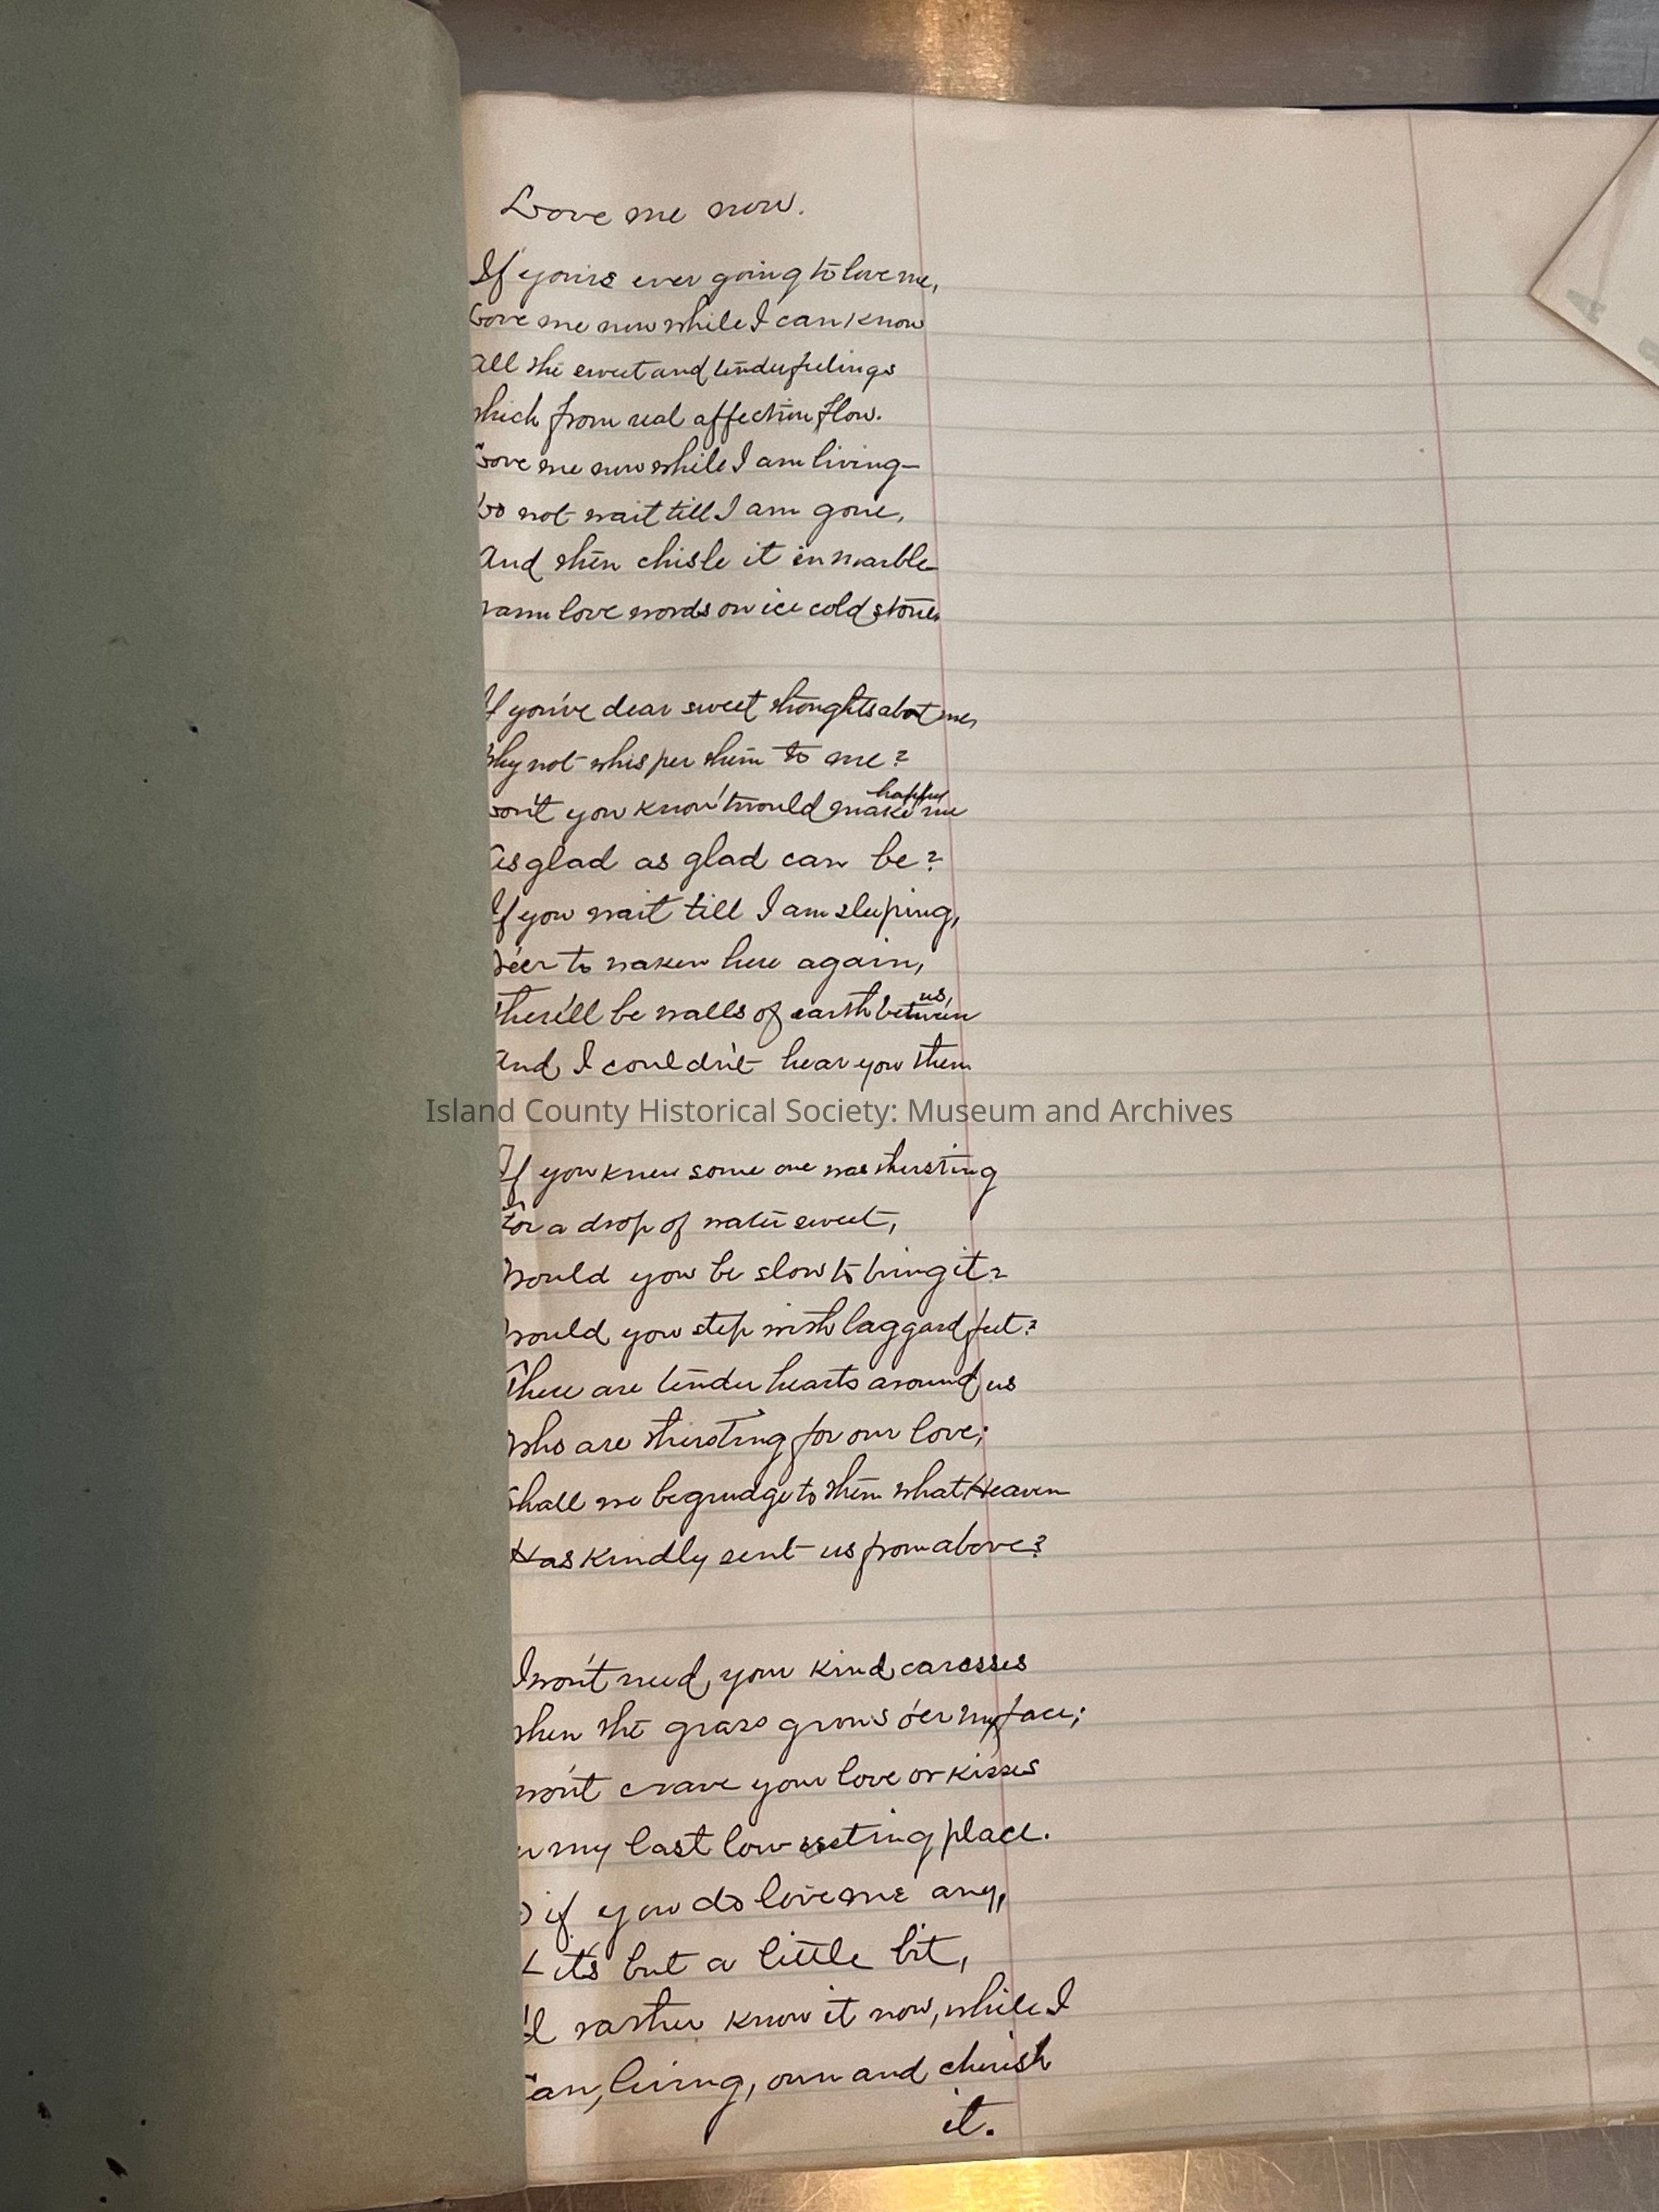 Love me now.
If you're ever going to love me,
Love me now while I can know
All the sweet and tender feelings
which from real affection flow.
Love me now while I am living—
Do not wait till I am gone,
And then chisle it in marble
warm love words on ice cold stone.
If you've dear sweet thoughts abot me,
Why not whisper them to me?
Don't you know 'twould make me happy
As glad as glad can be?
If you wait till I am sleeping,
Ne'er to waken here again,
There'll be walls of earth between us,
And I couldn't hear you then
Island County Historical Society: Museum and Archives
If you knew some one was thirsting
For a drop of water sweet,
Would you be slow to bring it?
Would you step with laggard feet?
There are tender hearts around us
Who are thirsting for our love;
Shall we begrudge to them what Heaven
Has kindly sent us from above?
I won't need your kind caresses
When the grass grows o'er my face;
won't crave your love or kisses
n my last low resting place.
O if you do love me any,
it's but a little bit,
'd rather know it now, while I
Can, living, own and cherish
it.